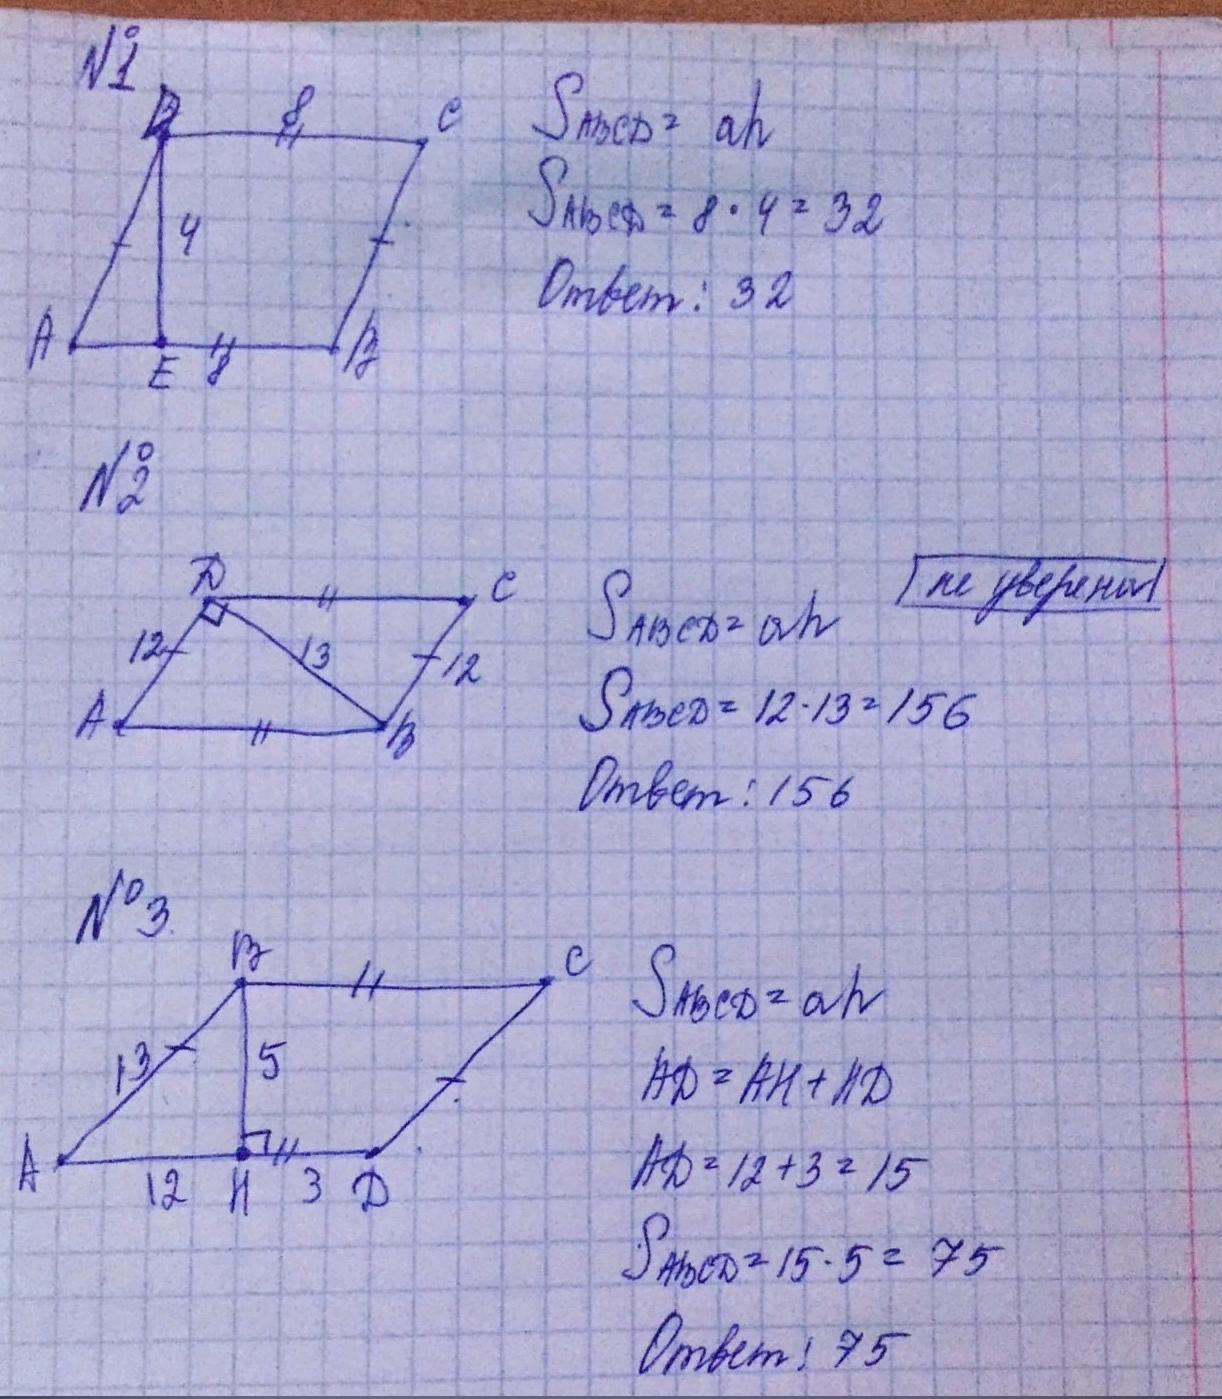 №1
D 8 C
4
A E 8 B
S ABCD = ah
S ABCD = 8 · 4 = 32
Ответ: 32
№2
D C
12 13 12
A B
не уверена
S ABCD = ah
S ABCD = 12 · 13 = 156
Ответ: 156
№3.
B C
13 5
A 12 H 3 D
S ABCD = ah
AD = AH + HD
AD = 12 + 3 = 15
S ABCD = 15 · 5 = 75
Ответ: 75